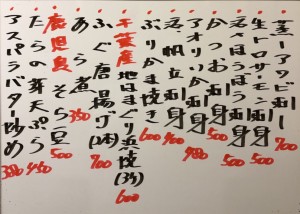 蒸しアワビ 700
生トロサーモン刺身 500
〆さば刺身 500
かつお刺身 500
アオリイカ刺身 480
帆立刺身 400
ぶりかま焼き 600
千葉産 地はまぐり浜焼(3ヶ) 600
ふぐ唐揚げ 700
あら煮 350
鹿児島 そら豆 500
たらの芽天ぷら 450
アスパラバター炒め 380